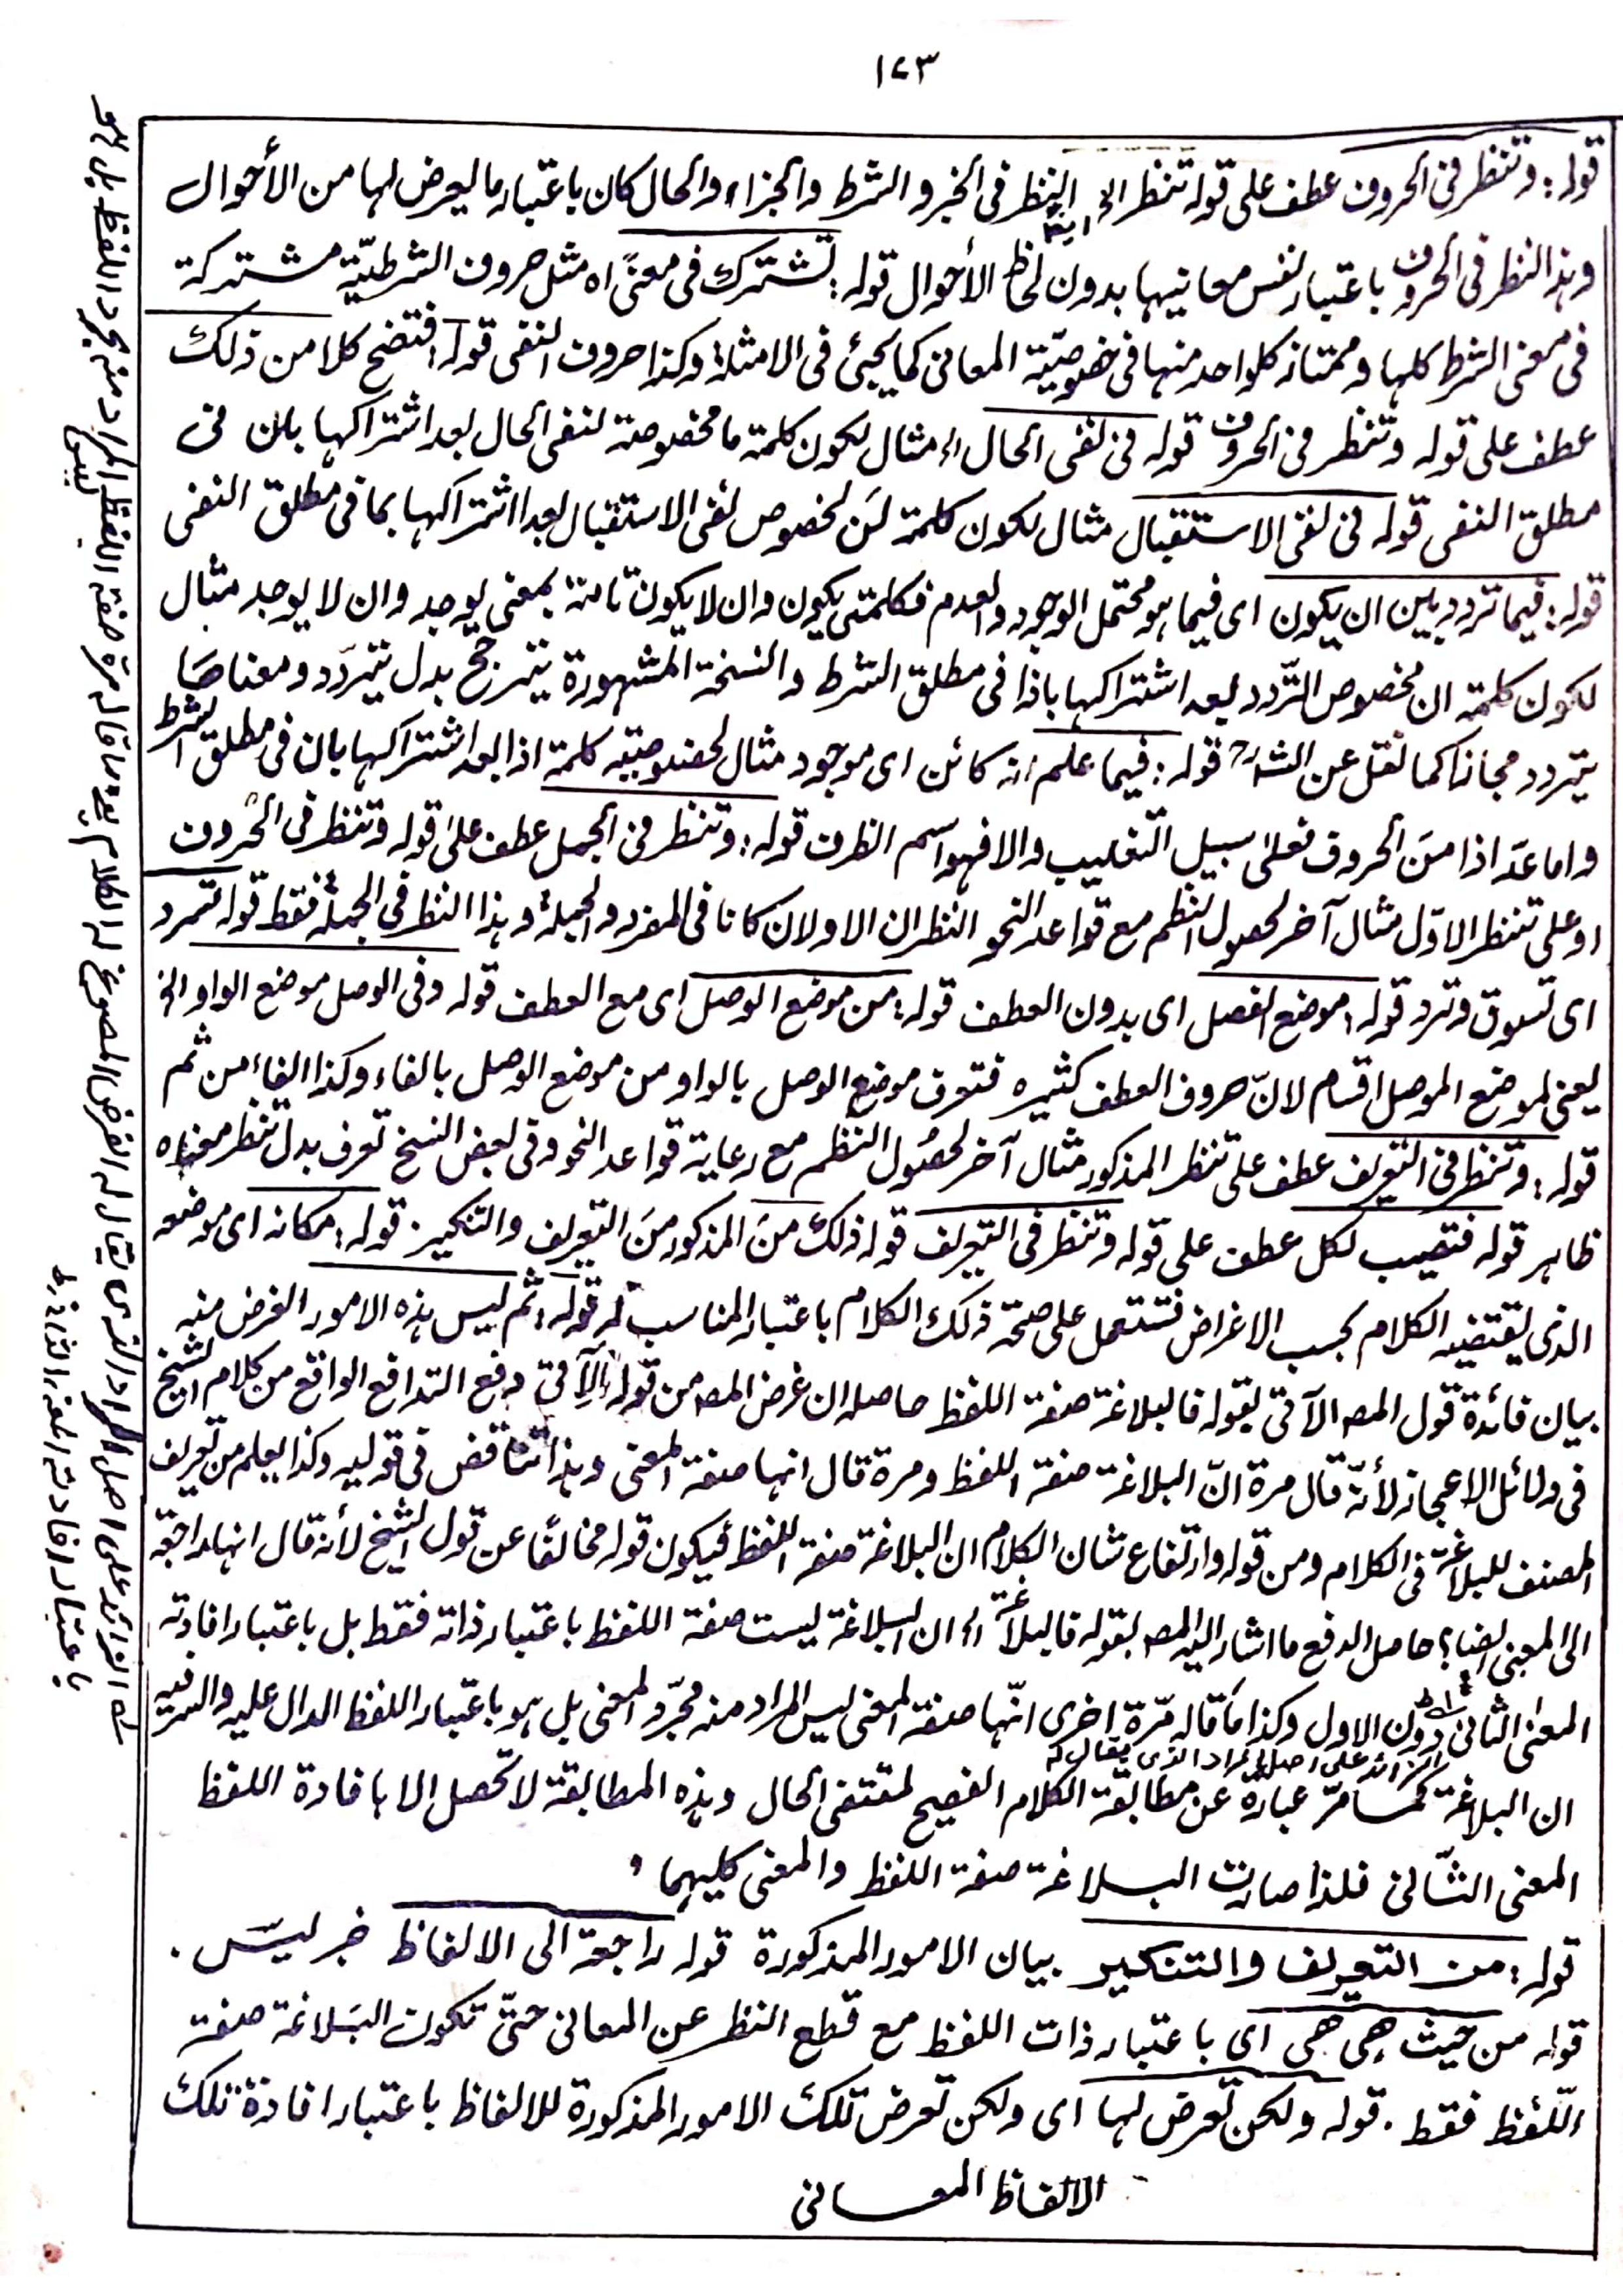 ١٤٣
قوله: وتنظر فى الحروف عطف على قوله تنظر الخ النظر فى الخبر والشرط والجزاء والحال كان باعتبار ما يعرض لها من الأحوال
وهذا النظر فى الحروف باعتبار نفس معانيها بدون لحاظ الأحوال قوله: تشترك فى معنًى اه مثل حروف الشرطيّة مشتركة
فى معنى الشرط كلها وممتاز كلواحد منها فى خصوصيّة المعانى كما يجئ فى الامثلة وكذا حروف النفى قوله: فتضح كلا من ذلك
عطف على قوله وتنظر فى الحروف قوله فى نفى الحال اه مثال لكون كلمة ما مخصوصة لنفى الحال بعد اشتراكها بلن فى
مطلق النفى قوله فى نفى الاستقبال مثال لكون كلمة لَن لخصوص نفى الاستقبال بعد اشتراكها بما فى مطلق النفى
قوله: فيما تردد بين ان يكون اى فيما هو محتمل الوجود والعدم فكلمتى يكون وان لا يكون تامة بمعنى يوجد وان لا يوجد مثال
لكون كلمة ان مخصوص التّردد بعد اشتراكها باذا فى مطلق الشرط والنسخة المشهورة يترجح بدل يتردّد ومعناها
يتردد مجازا كما نقل عن الشارح قوله: فيما علم انه كائن اى موجود مثال لخصوصية كلمة اذا بعد اشتراكها بان فى مطلق الشرط
واما عدّ اذا منَ الحروف فعلىٰ سبيل التغليب والا فهو اسم الظرف قوله: وتنظر فى الجمل عطف على قوله وتنظر فى الحروف
او على تنظر الاوّل مثال آخر لحصول النظم مع قواعد النحو النظران الاولان كانا فى المفرد والجملة وهذا النظر فى الجملة فقط قوله تسرد
اى تسوق وترد قوله: موضع الفصل اى بدون العطف قوله: من موضع الوصل اى مع العطف قوله وفى الوصل موضع الواو الخ
يعنى لموضع الموصل اقسام لانّ حروف العطف كثيره فتعرف موضع الوصل بالواو من موضع الوصل بالفاء وكذا الفاء من ثم
قوله: وتنظر فى التعريف عطف على تنظر المذكور مثال آخر لحصُول النظم مع رعاية قواعد النحو وفى بعض النسخ تعرف بدل تنظر معناه
ظاهر قوله فتصيب لكل عطف على قوله وتنظر فى التعريف قوله ذلك منَ المذكور منَ التعريف والتنكير. قوله: مكانه اى موضعه
الذى يقتضيه الكلام بحسب الاغراض فتستعمل على صحة ذلك الكلام باعتبار المناسب له قوله: ثم ليس هذه الامور الغرض منه
بيان فائدة قول المصـ الآتى بقوله فالبلاغة صفة اللفظ حاصله ان غرض المصـ من قوله الآتى دفع التدافع الواقع من كلام الشيخ
فى دلائل الاعجاز لأنّه قال مرة انّ البلاغة صفة اللفظ ومرة قال انها صفة المعنى وهذا تناقض فى قوليه وكذا يعلم من تعريف
المصنف للبلاغة فى الكلام ومن قوله وارتفاع شان الكلام ان البلاغة صفة اللفظ فيكون قوله مخالفًا عن قول الشيخ لأنه قال انها راجعة
الى المعنى ايضا؟ حاصل الدفع ما اشار اليه المصـ بقوله فالبلاغة اه ان البلاغة ليست صفة اللفظ باعتبار ذاته فقط بل باعتبار افادته
المعنى الثانى دون الاول وكذا مَا قاله مرّة اخرى انّها صفة المعنى ليس المراد منه مجرّد المعنى بل هو باعتبار اللفظ الدال عليه والسر فيه
الزائد على اصل المراد الذى يقال له
ان البلاغة كمَا مرّ عبارة عن مطابقة الكلام الفصيح لمقتضى الحال وهذه المطابقة لا تحصل الا بافادة اللفظ
المعنى الثّانى فلذا صارت البلاغة صفة اللفظ والمعنى كليهما،
قوله: من التعريف والتنكير بيان الامور المذكورة قوله راجعة الى الالفاظ خبر ليسَ.
قوله من حيث هى هى اى باعتبار ذات اللفظ مع قطع النظر عن المعانى حتّى تكون البَلاغة صفة
اللّفظ فقط. قوله ولكن تعرض لها اى ولكن تعرض تلك الامور المذكورة للالفاظ باعتبار افادة تلك
الالفاظ المعانى
له الزائد على اصل المراد الذى يقال له الغرض المصوغ له الكلام
باعتبار افادته المعنى